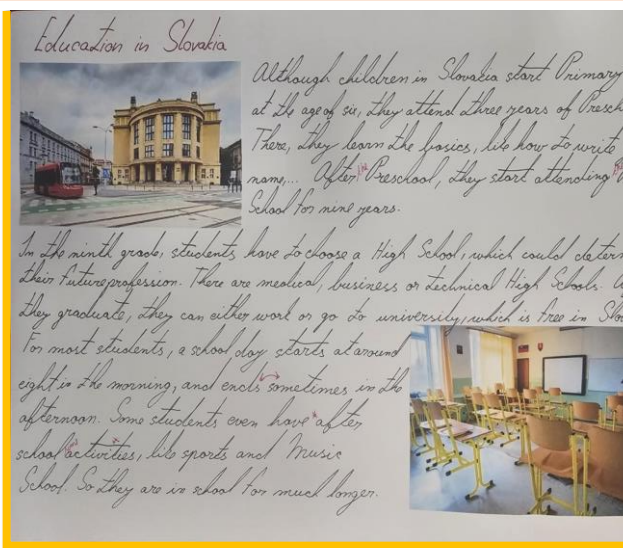 Education in Slovakia
Although children in Slovakia start Primary
at the age of six, they attend three years of Presch
There, they learn the basics, like how to write
name,... After Preschool, they start attending
School for nine years.
In the ninth grade, students have to choose a High School, which could determ
their future profession. There are medical, business or technical High Schools. A
they graduate, they can either work or go to university, which is free in Slov
For most students, a school day starts at around
eight in the morning, and ends sometimes in the
afternoon. Some students even have after
school activities, like sports and Music
School. So they are in school for much longer.